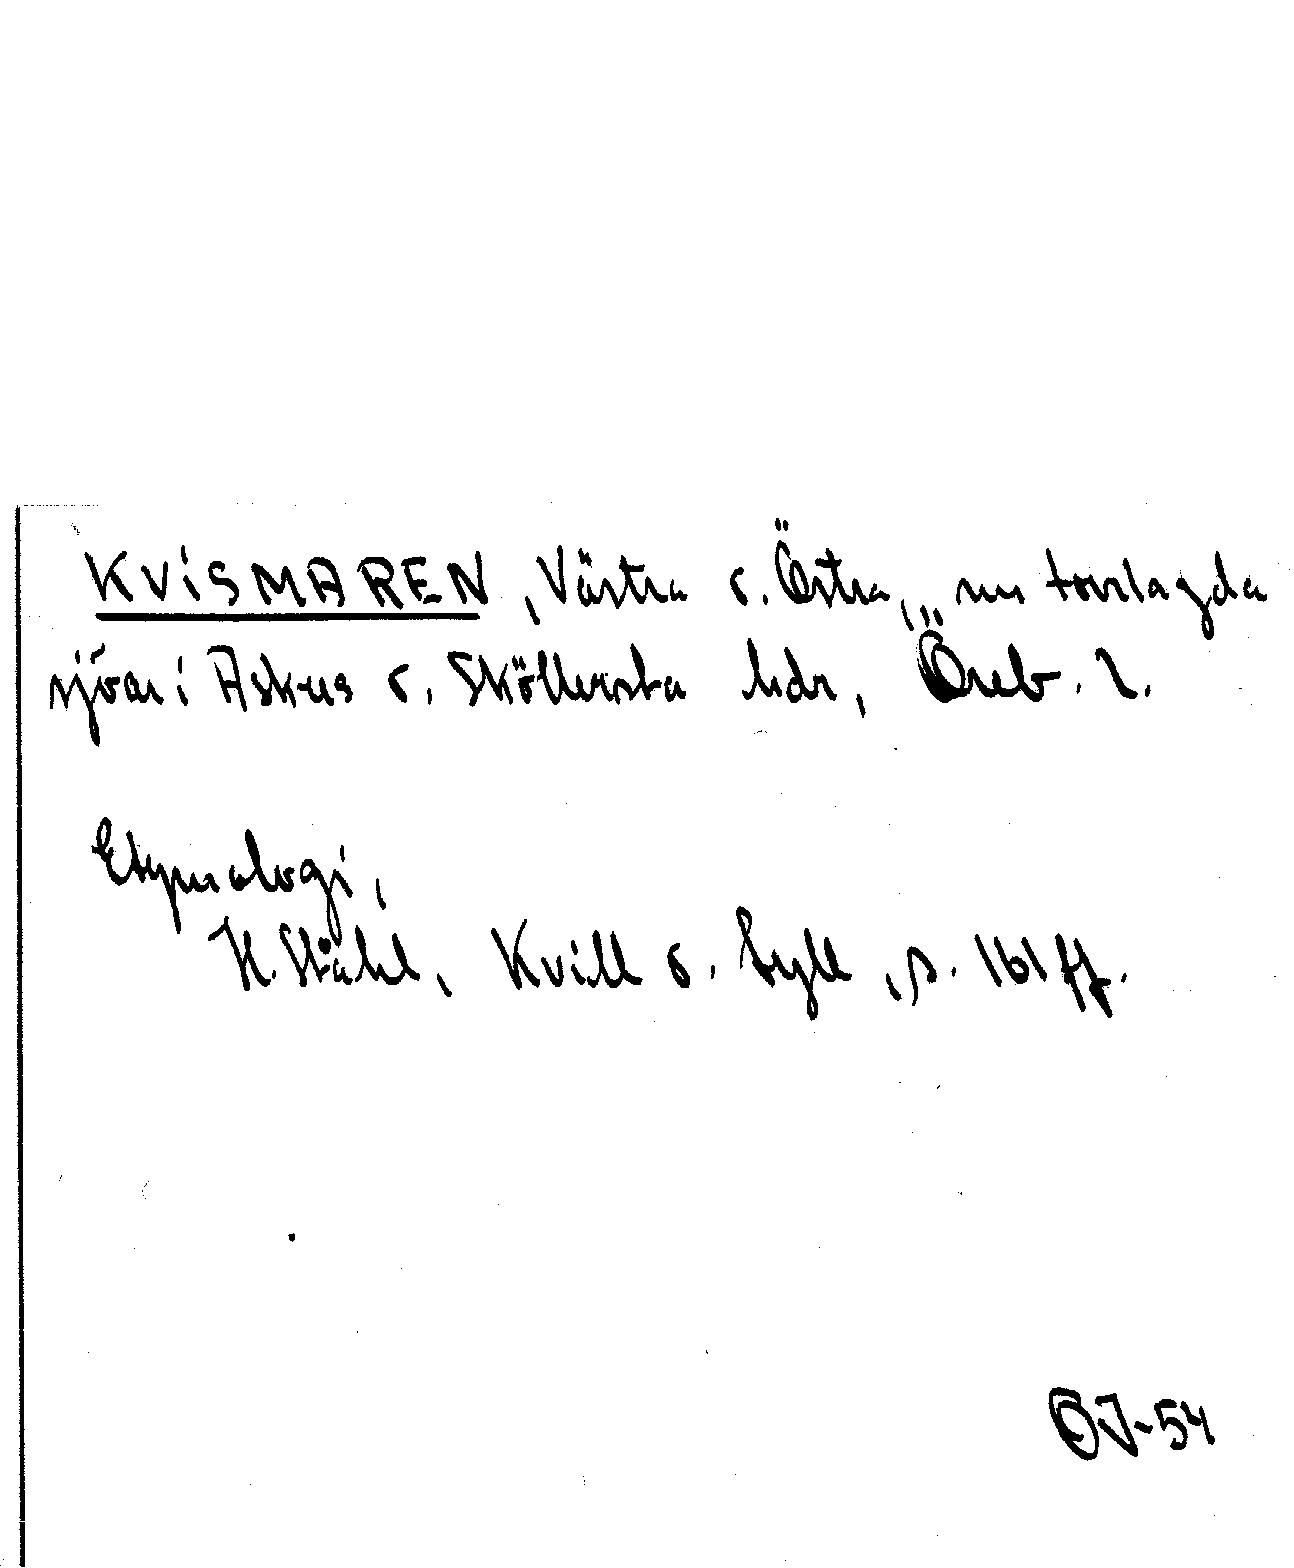 KVISMAREN, Västra o. Östra, nu torrlagda
sjöar i Askers o. Sköllersta hdr, Öreb. l.
Etymologi,
H. Ståhl, Kvill o. tyll, s. 161 ff.
OJ-54